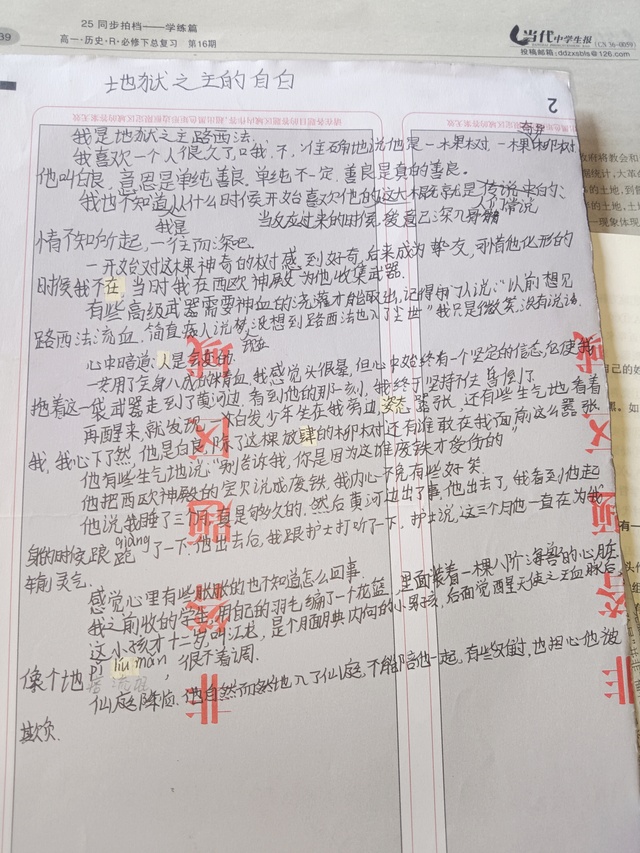 25 同步拍档——学练篇
高一·历史·R·必修下总复习 第16期
39
当代中学生报 (CN 36-0059)
投稿邮箱:ddzxsbls@126.com
2
地狱之主的自白
我是地狱之主路西法.
我喜欢一个人很久了,哦,不,准确地说他是一木果树,一棵柳树
奇异
他叫白良,意思是单纯善良.单纯不一定,善良是真的善良.
我也不知道从什么时候开始喜欢他的,这大概就是传说中的、
人们常说
我是 当反应过来的时候,发自己深入骨髓
情不知所起,一往而深吧.
一开始对这棵神奇的树感到好奇,后来成为挚友,可惜他化形的
时候我不在,当时我在西欧神殿为他收集武器.
有些高级武器需要神血的浇灌才能取出,记得有人说:"以前想见
路西法流血,简直痴人说梦,没想到路西法也入了尘世"我只是微笑,没有说话.
心中暗道:人是会变的
现在
一共用了全身八成的精血,我感觉头很晕,但心中始终有一个坚定的信念,它使我
拖着这一袋武器走到了黄河边,看到他的那一刻,我终于坚持不住,昏倒了
再醒来,就发现一个白发少年坐在我旁边,姿态嚣张,还有些生气地看着
我,我心下了然,他是白良,除了这棵放肆的柳树还有谁敢在我面前这么嚣张.
他有些生气地说:"别告诉我,你是因为这堆废铁才受伤的"
他把西欧神殿的宝贝说成废铁,我内心不免有些好笑.
他说我睡了三个月,真是够久的.然后黄河边出了事,他出去了,我看到他起
身的时候踉跄了一下.他出去后,我跟护士打听了一下,护士说,这三个月他一直在为我
qiàng
输灵气.
感觉心里有些胀胀的,也不知道怎么回事.
我之前收的学生,用自己的羽毛编了一个花篮,里面装着一颗八阶海兽的心脏
这小孩才十一岁,叫江龙,是个腼腆内向的小男孩,后面觉醒天使之王血脉后,
像个地痞流氓,很不着调.
pǐ liú máng
仙庭降临.他自然而然地入了仙庭,不能陪他一起,有些难过,也担心他被
欺负.